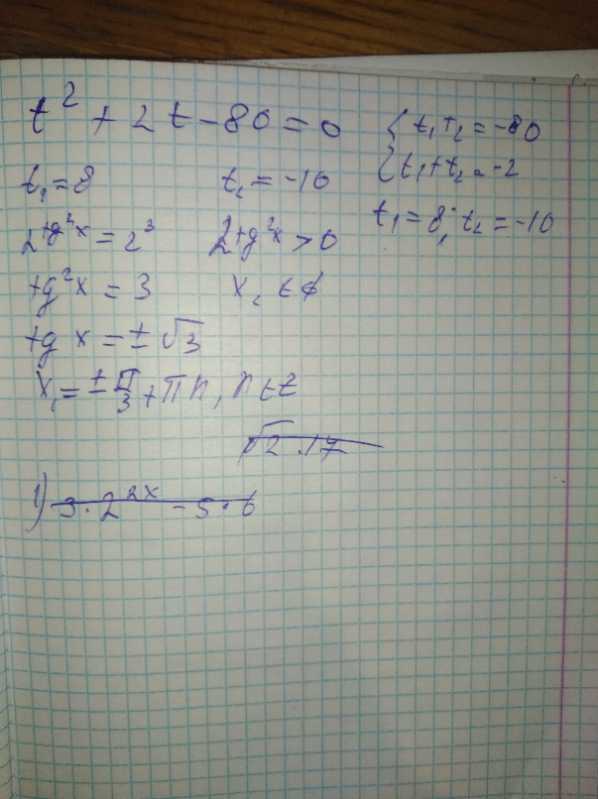 t² + 2t - 80 = 0
{ t₁ t₂ = -80
{ t₁ + t₂ = -2
t₁ = 8; t₂ = -10
t₁ = 8 t₂ = -10
2^(tg²x) = 2³ 2^(tg²x) > 0
tg²x = 3 x₂ ∈ ∅
tg x = ± √3
x₁ = ± π/3 + πn, n ∈ Z
√2.17
1) 3·2^(2x) - 5·6